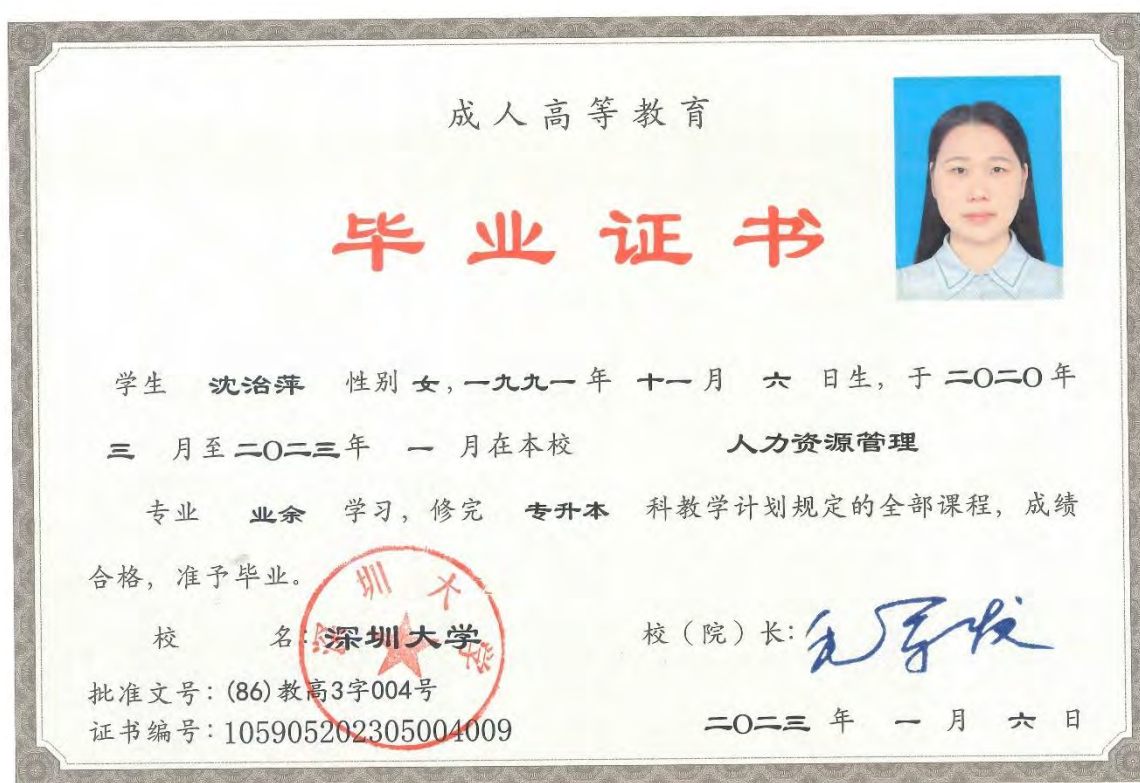 成人高等教育
毕业证书
学生 沈治萍 性别 女,一九九一年 十一月 六 日生,于 二〇二〇年
三 月至 二〇二三年 一 月在本校 人力资源管理
专业 业余 学习,修完 专升本 科教学计划规定的全部课程,成绩
合格,准予毕业。
校 名:深圳大学 校(院)长:毛军发
深圳大学
批准文号:(86)教高3字004号
证书编号:105905202305004009
二〇二三 年 一 月 六 日